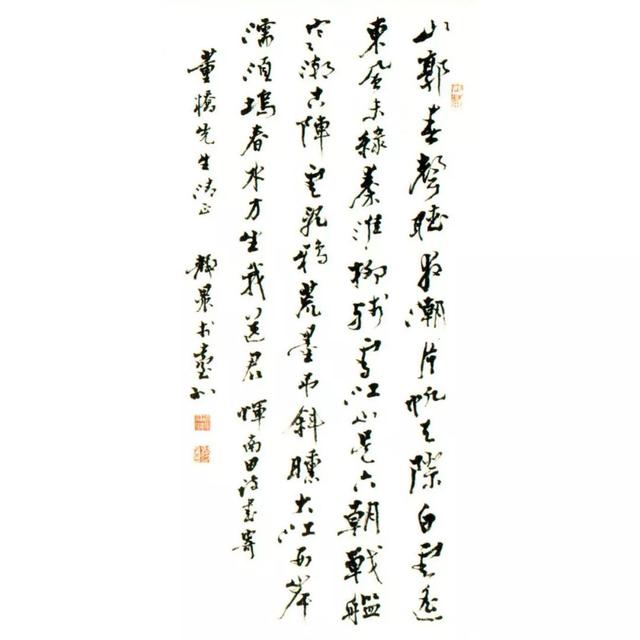 山郭春聲聽夜潮片帆天際白雲遙
東風未綠秦淮柳殘雪江山是六朝戰艦
空潮古陣雲亂鴉荒壘吊斜曛大江西岸
濡須塢春水方生我送君 惲南田詩書寄
董橋先生清正 靜農於臺北